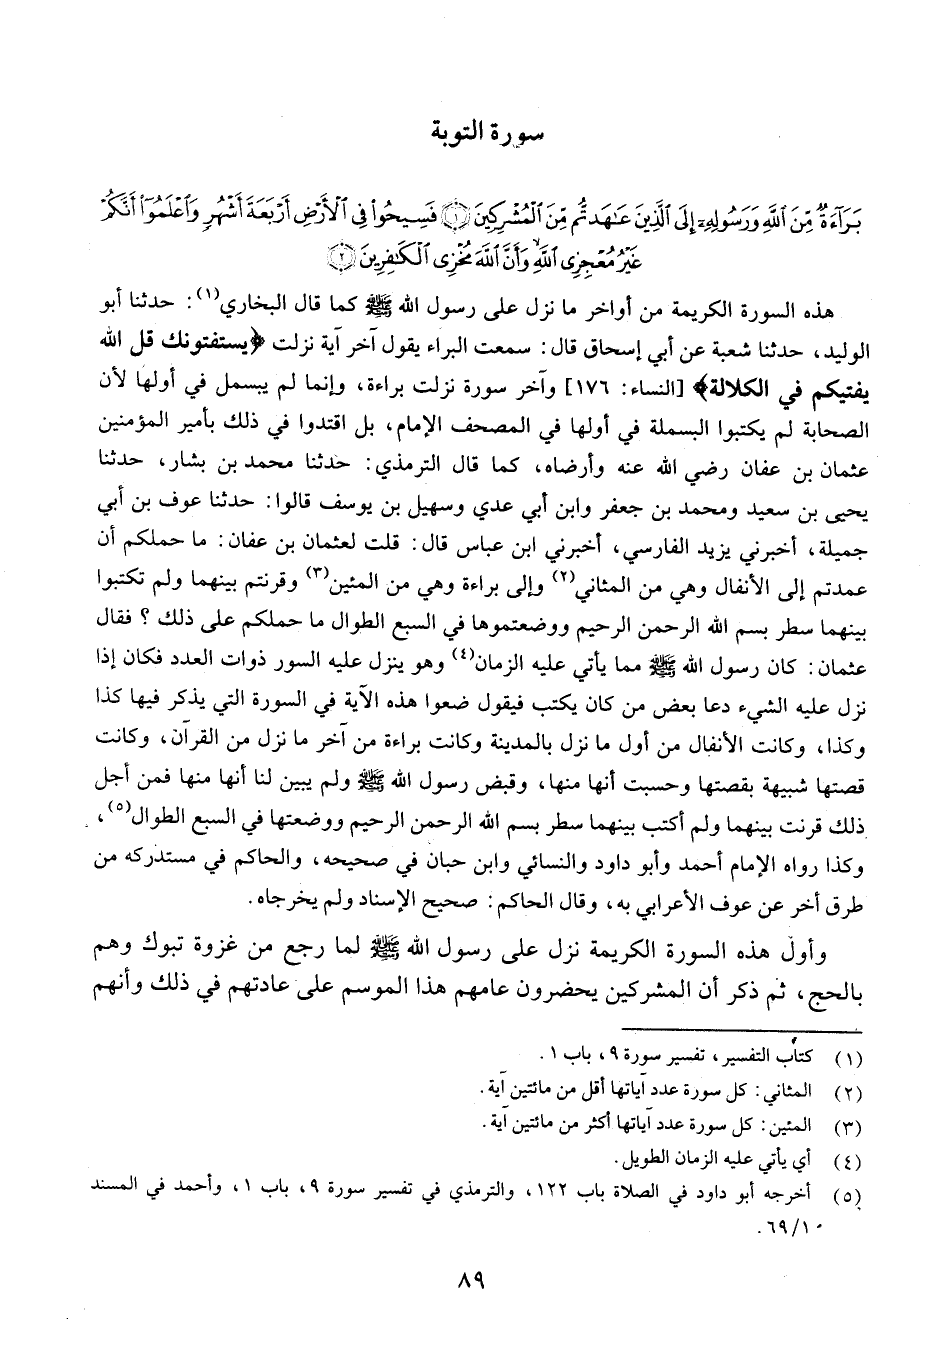 سورة التوبة
بَرَآءَةٌ مِّنَ ٱللَّهِ وَرَسُولِهِۦٓ إِلَى ٱلَّذِينَ عَٰهَدتُّم مِّنَ ٱلْمُشْرِكِينَ ﴿١﴾ فَسِيحُوا۟ فِى ٱلْأَرْضِ أَرْبَعَةَ أَشْهُرٍ وَٱعْلَمُوٓا۟ أَنَّكُمْ
غَيْرُ مُعْجِزِى ٱللَّهِ وَأَنَّ ٱللَّهَ مُخْزِى ٱلْكَٰفِرِينَ ﴿٢﴾
هذه السورة الكريمة من أواخر ما نزل على رسول الله ﷺ كما قال البخاري(١): حدثنا أبو
الوليد، حدثنا شعبة عن أبي إسحاق قال: سمعت البراء يقول آخر آية نزلت ﴿يستفتونك قل الله
يفتيكم في الكلالة﴾ [النساء: ١٧٦] وآخر سورة نزلت براءة، وإنما لم يبسمل في أولها لأن
الصحابة لم يكتبوا البسملة في أولها في المصحف الإمام، بل اقتدوا في ذلك بأمير المؤمنين
عثمان بن عفان رضي الله عنه وأرضاه، كما قال الترمذي: حدثنا محمد بن بشار، حدثنا
يحيى بن سعيد ومحمد بن جعفر وابن أبي عدي وسهيل بن يوسف قالوا: حدثنا عوف بن أبي
جميلة، أخبرني يزيد الفارسي، أخبرني ابن عباس قال: قلت لعثمان بن عفان: ما حملكم أن
عمدتم إلى الأنفال وهي من المثاني(٢) وإلى براءة وهي من المئين(٣) وقرنتم بينهما ولم تكتبوا
بينهما سطر بسم الله الرحمن الرحيم ووضعتموها في السبع الطوال ما حملكم على ذلك ؟ فقال
عثمان: كان رسول الله ﷺ مما يأتي عليه الزمان(٤) وهو ينزل عليه السور ذوات العدد فكان إذا
نزل عليه الشيء دعا بعض من كان يكتب فيقول ضعوا هذه الآية في السورة التي يذكر فيها كذا
وكذا، وكانت الأنفال من أول ما نزل بالمدينة وكانت براءة من آخر ما نزل من القرآن، وكانت
قصتها شبيهة بقصتها وحسبت أنها منها، وقبض رسول الله ﷺ ولم يبين لنا أنها منها فمن أجل
ذلك قرنت بينهما ولم أكتب بينهما سطر بسم الله الرحمن الرحيم ووضعتها في السبع الطوال(٥)،
وكذا رواه الإمام أحمد وأبو داود والنسائي وابن حبان في صحيحه، والحاكم في مستدركه من
طرق أخر عن عوف الأعرابي به، وقال الحاكم: صحيح الإسناد ولم يخرجاه.
وأول هذه السورة الكريمة نزل على رسول الله ﷺ لما رجع من غزوة تبوك وهم
بالحج، ثم ذكر أن المشركين يحضرون عامهم هذا الموسم على عادتهم في ذلك وأنهم
(١) كتاب التفسير، تفسير سورة ٩، باب ١.
(٢) المثاني: كل سورة عدد آياتها أقل من مائتين آية.
(٣) المئين: كل سورة عدد آياتها أكثر من مائتين آية.
(٤) أي يأتي عليه الزمان الطويل.
(٥) أخرجه أبو داود في الصلاة باب ١٢٢، والترمذي في تفسير سورة ٩، باب ١، وأحمد في المسند
٦٩/١٠.
٨٩